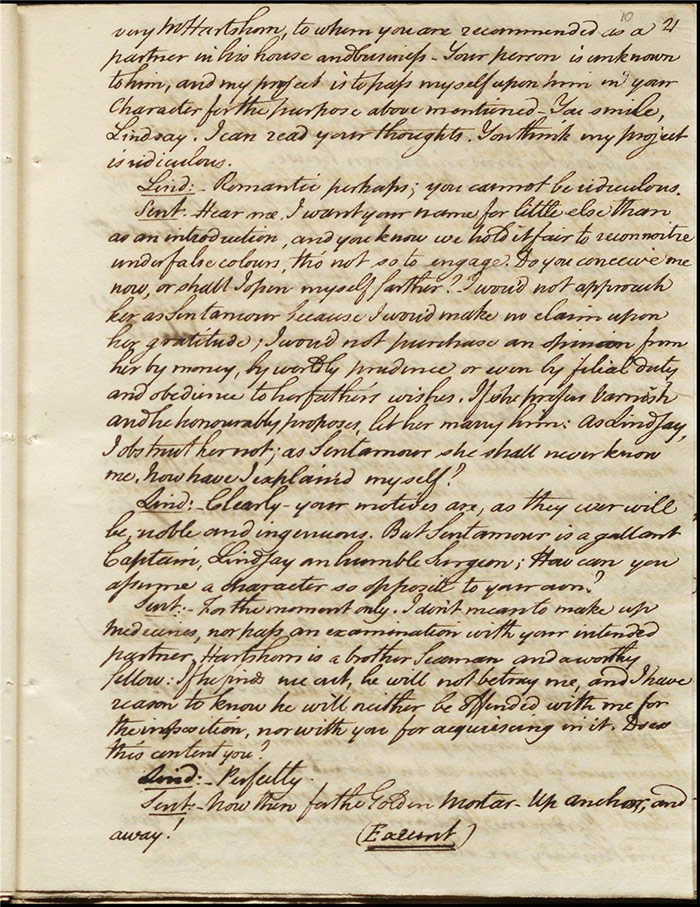 10 21
very Mr Hartshorn, to whom you are recommended as a
partner in his house and business - Your person is unknown
to him, and my project is to pass myself upon him in your
Character for the purpose above mentioned - You smile,
Lindsay. I can read your thoughts. You think my project
is ridiculous.
Lind: - Romantic perhaps; you cannot be ridiculous.
Sent. - Hear me. I want your name for little else than
as an introduction, and you know we hold it fair to reconnoitre
under false colours, tho' not so to engage. Do you conceive me
now, or shall I open myself farther? I would not approach
her as Sentamour because I would make no claim upon
her gratitude; I would not purchase an opinion from
her by money, by worldly prudence or even by filial duty
and obedience to her father's wishes. If she prefers Varnish
and he honourably proposes, let her marry him: As Lindsay,
I obstruct her not; as Sentamour she shall never know
me. Now have I explain'd myself?
Lind: - Clearly - your motives are, as they ever will
be, noble and ingenuous. But Sentamour is a gallant
Captain, Lindsay an humble Surgeon; How can you
assume a character so opposite to your own?
Sent: - For the moment only. I don't mean to make up
medicines, nor pass an examination with your intended
partner. Hartshorn is a brother Seaman and a worthy
fellow: If he finds me out, he will not betray me, and I have
reason to know he will neither be offended with me for
the imposition, nor with you for acquiescing in it. Does
this content you?
Lind: - Perfectly.
Sent: - Now then for the Golden Mortar - Up anchor, and
away! (Exeunt)